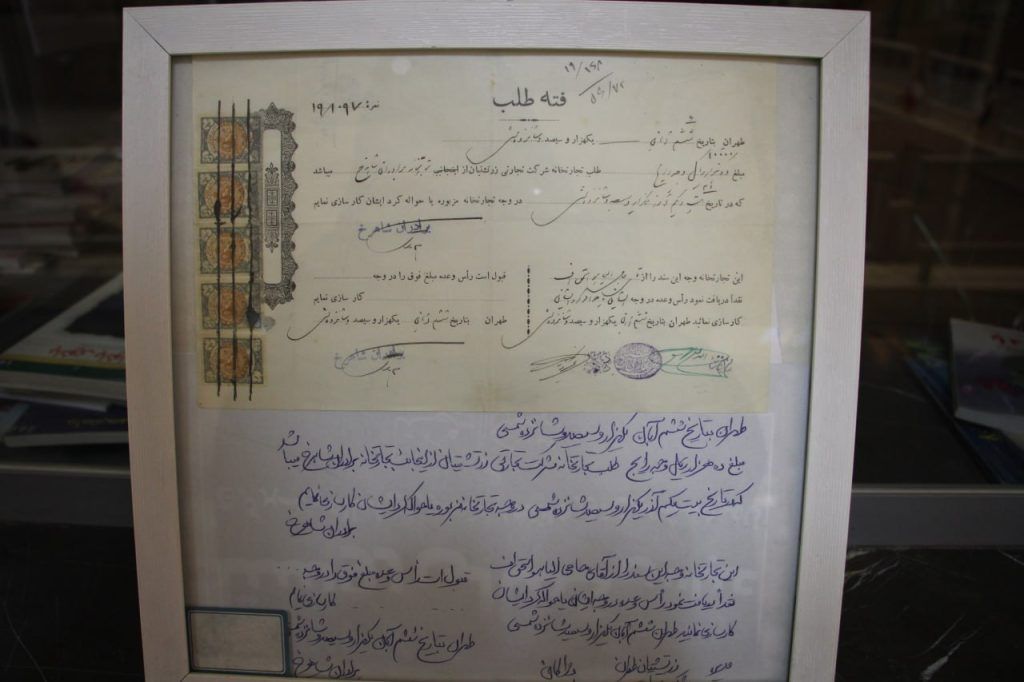 ۱۹/۱۶۸
فته طلب
نمره: ۱۹/۱۰۹۷
طهران بتاریخ ششم آبان یکهزار و سیصد و شانزده شمسی
مبلغ ده هزار ریال وجه رایج طلب تجارتخانه شرکت تجارتی زرتشتیان از اینجانب تجارتخانه برادران شاهرخ میباشد
که در تاریخ بیست و یکم آذر یکهزار و سیصد و شانزده شمسی در وجه تجارتخانه مزبوره یا حواله کرد ایشان کار سازی نمایم
برادران شاهرخ
این تجارتخانه وجه این سند را از
نقداً دریافت نمود رأس وعده در وجه
کار سازی نمائید طهران بتاریخ ششم آبان یکهزار و سیصد و شانزده شمسی
قبول است رأس وعده مبلغ فوق را در وجه
کار سازی نمایم
طهران بتاریخ ششم آبان یکهزار و سیصد و شانزده شمسی
برادران شاهرخ
طهران بتاریخ ششم آبان یکهزار و سیصد و شانزده شمسی
مبلغ ده هزار ریال وجه رایج طلب تجارتخانه شرکت تجارتی زرتشتیان از اینجانب تجارتخانه برادران شاهرخ میباشد
که در تاریخ بیست یکم آذر یکهزار و سیصد شانزده شمسی در وجه تجارتخانه مزبوره یا حواله کرد ایشان کار سازی نمایم
برادران شاهرخ
این تجارتخانه وجه این سند را از آقای حاجی
نقداً دریافت نمود رأس وعده در وجه ایشان یا حواله کرد ایشان
کار سازی نمائید طهران ششم آبان یکهزار و سیصد شانزده شمسی
زرتشتیان طهران
قبول است رأس وعده مبلغ فوق را در وجه ....
کار سازی نمایم
طهران بتاریخ ششم آبان یکهزار و سیصد و شانزده شمسی
برادران شاهرخ